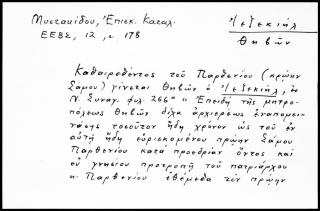 Μυσταμίδου, Ἐπισκ. Καταλ.
Ἰεζεκιὴλ
ΕΕΒΣ, 12, σ. 178
Θηβῶν
Καθαιρεθέντος τοῦ Παρθενίου (πρώην
Σάμου) γίνεται Θηβῶν ὁ Ἰεζεκιήλ,
Ν. Συναγ. φυλ. 266 "Ἐπειδὴ τῆς μητρο-
πόλεως Θηβῶν δίχα ἀρχιερέως ἐναπομει-
νάσης τοσοῦτον ἤδη χρόνον ὡς τοῦ ἐν
αὐτῇ ἤδη εὑρισκομένου πρώην Σάμου
Παρθενίου κατὰ προεδρίαν ὄντος καὶ
οὐ γνησίου προτροπῇ τοῦ πατριάρχου
κ. Παρθενίου ἐθέμεθα τὸν πρώην